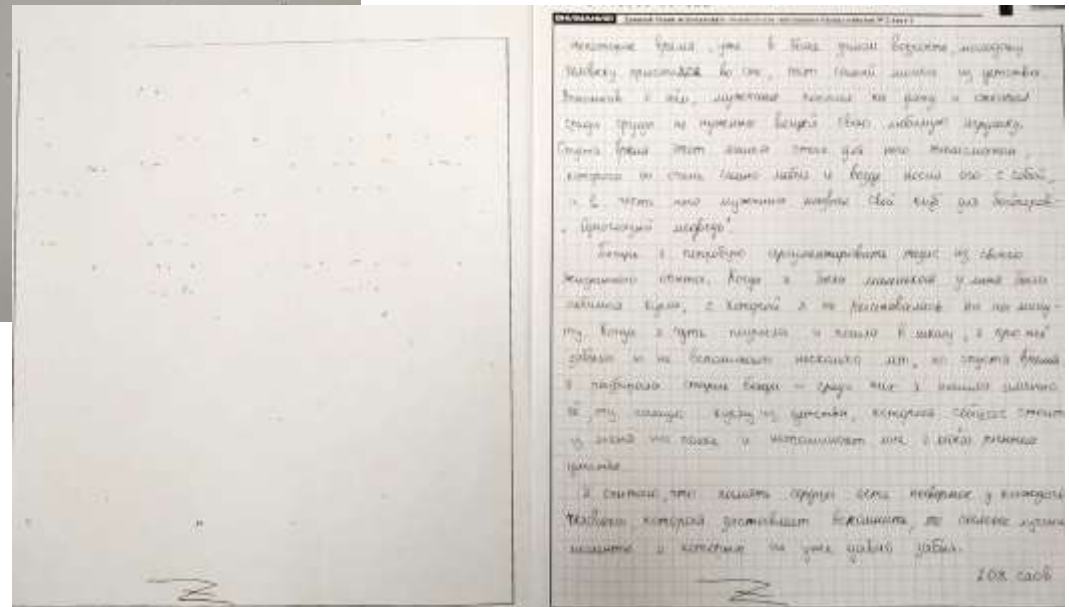 ВНИМАНИЕ!
некоторое время, уже в более зрелом возрасте, молодому
человеку приснился во сне, тот самый мишка из детства.
Вспомнив о нём, мужчина поехал на дачу и
среди груды не нужных вещей свою любимую игрушку.
Спустя время этот мишка стал для него талисманом,
которого он очень сильно любил и везде носил его с собой,
и в честь него мужчина назвал свой клуб для байкеров-
"Одноглазый медведь".
Теперь я попробую аргументировать тезис из своего
жизненного опыта. Когда я была маленькой у меня была
любимая кукла, с которой я не расставалась ни на мину-
ту. Когда я чуть подросла и пошла в школу, я про неё
забыла и не вспоминала несколько лет, но спустя время
я разбирала старые вещи - среди них я нашла
ту самую куклу из детства, которая сейчас стоит
у меня на полке и напоминает мне о
детства.
Я считаю, что память сердца есть у каждого
человека, которая вспомнить, те самые лучшие
моменты о которых он уже давно забыл.
208 слов